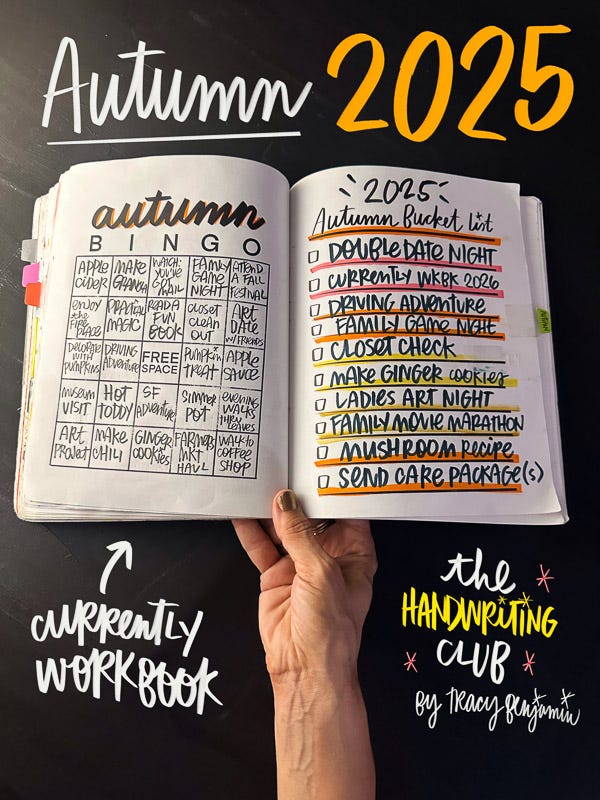 Autumn 2025
autumn
BINGO
APPLE CIDER
MAKE GRANOLA
WATCH: YOU'VE GOT MAIL
FAMILY GAME NIGHT
ATTEND A FALL FESTIVAL
ENJOY the FIREPLACE
PRACTICAL MAGIC
READ A FUN BOOK
CLOSET CLEAN OUT
ART DATE W/ FRIENDS
DECORATE WITH PUMPKINS
DRIVING ADVENTURE
FREE SPACE
PUMPKIN TREAT
APPLE SAUCE
MUSEUM VISIT
HOT TODDY
SF ADVENTURE
SIMMER POT
EVENING WALKS THRU LEAVES
ART PROJECT
MAKE CHILI
GINGER COOKIES
FARMERS MKT HAUL
WALK to COFFEE SHOP
2025
Autumn Bucket list
DOUBLE DATE NIGHT
CURRENTLY WKBK 2026
DRIVING ADVENTURE
FAMILY GAME NIGHT
CLOSET CHECK
MAKE GINGER COOKIES
LADIES ART NIGHT
FAMILY MOVIE MARATHON
MUSHROOM RECIPE
SEND CARE PACKAGE(S)
CURRENTLY
WORKBOOK
the
HANDWRITING
CLUB
BY TRACY BENJAMIN